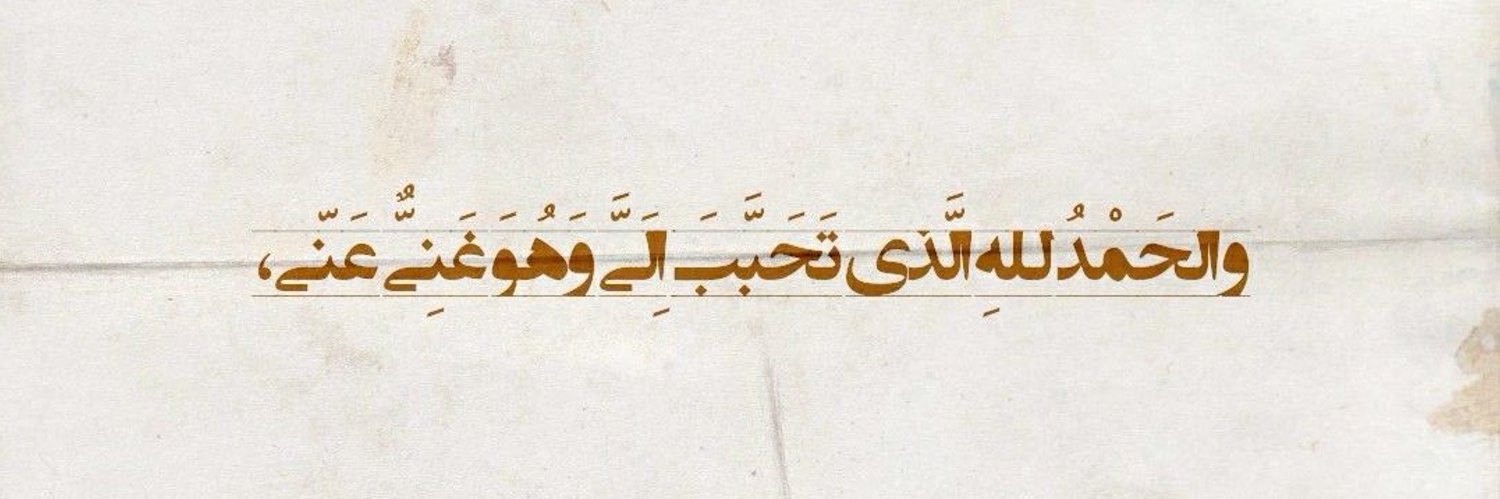 والحَمْدُ للهِ الَّذی تَحَبَّبَ اِلَیَّ وَهُوَ غَنِیٌّ عَنّی،